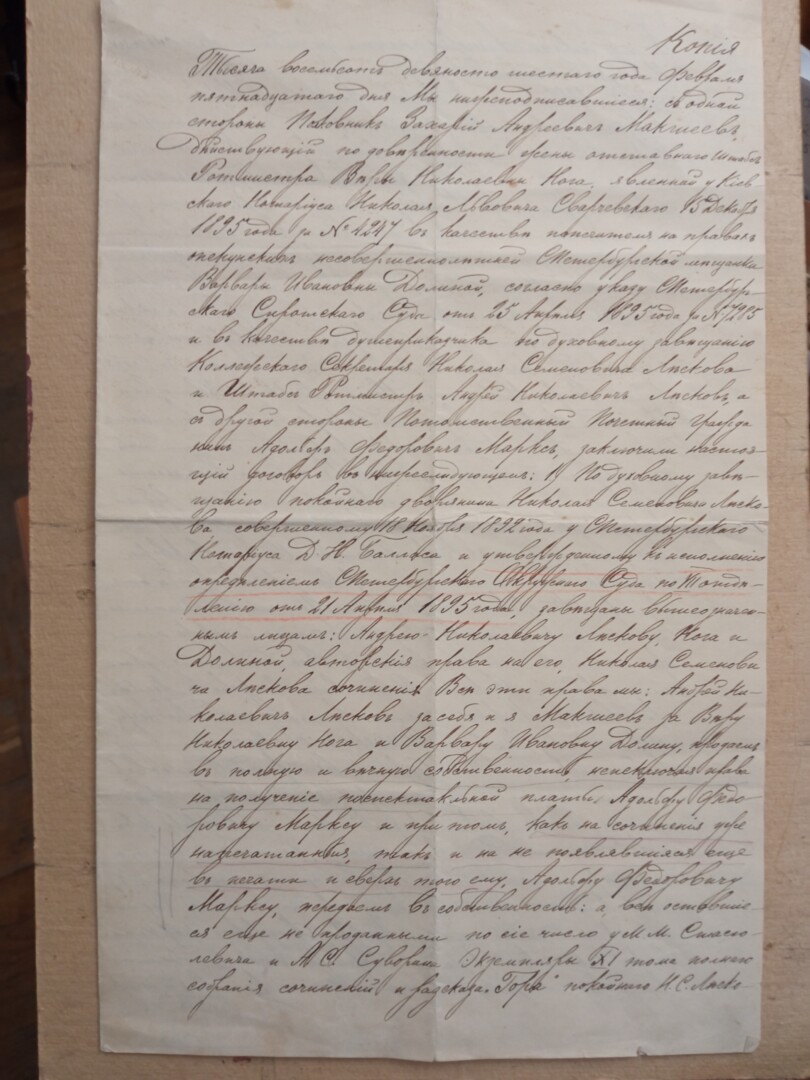 Копія
Тысяча восемьсотъ девяносто шестаго года Февраля
пятнадцатаго дня Мы нижеподписавшіеся: съ одной
стороны Полковникъ Захарій Андреевичъ Макшеевъ,
дѣйствующій по довѣренности жены отставнаго Штабсъ
Ротмистра Вѣры Николаевны Нога, явленной у Кіев-
скаго Нотаріуса Николая Львовича Сварчевскаго 15 Декабря
1895 года за № 4247 въ качествѣ попечителя на правахъ
опекунскихъ несовершеннолѣтней СПетербургской мѣщанки
Варвары Ивановны Долиной, согласно указу СПетербург
скаго Сиротскаго Суда отъ 25 Апрѣля 1895 года за № 7285
и въ качествѣ душеприкащика по духовному завѣщанію
Коллежскаго Секретаря Николая Семеновича Лѣскова
и Штабсъ Ротмистръ Андрей Николаевичъ Лѣсковъ, а
съ другой стороны Потомственный Почетный Гражда
нинъ Адольфъ Федоровичъ Марксъ, заключили настоя-
щій договоръ въ нижеслѣдующемъ: 1) По духовному завѣ-
щанію покойнаго дворянина Николая Семеновича Лѣско-
ва совершенному 18 Ноября 1892 года у СПетербургскаго
Нотаріуса Д. Н. и утвержденному къ исполненію
опредѣленіемъ СПетербургскаго Окружнаго Суда по 7 отдѣ-
ленію отъ 21 Апрѣля 1895 года, завѣщаны вышеозначен-
нымъ лицамъ: Андрею Николаевичу Лѣскову, Нога и
Долиной, авторскія права на его, Николая Семенови
ча Лѣскова сочиненія. Всѣ эти права мы: Андрей Ни-
колаевичъ Лѣсковъ за себя и я Макшеевъ за Вѣру
Николаевну Нога и Варвару Ивановну Долину, продаемъ
въ полную и вѣчную собственность, неисключая права
на полученіе поспектакльной платы, Адольфу Федо
ровичу Марксу и при томъ, какъ на сочиненія уже
напечатанныя, такъ и на не появлявшіяся еще
въ печати и сверхъ того ему, Адольфу Федоровичу
Марксу, передаемъ въ собственность: а, всѣ оставшіе-
ся еще не проданными по сіе число у М. М. Стасю-
левича и А. С. Суворина экземпляры XI тома полнаго
собранія сочиненій и разсказа „Гора" покойнаго Н. С. Лѣско-